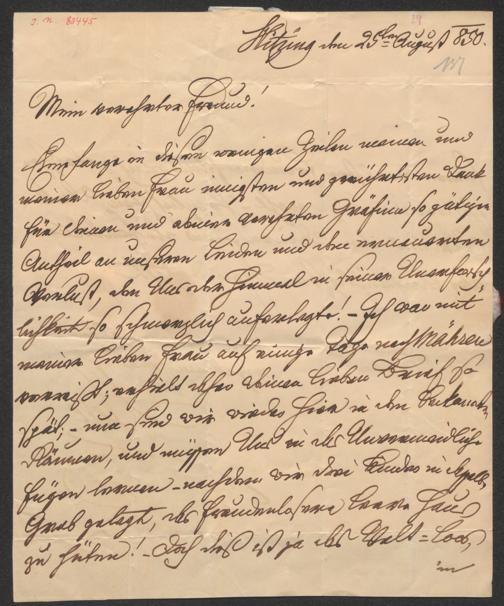 J. N. 80445
29
Hitzing den 25ten August 850.
Mein verehrter Freund!
Empfange in diesen wenigen Zeilen meinen und
meiner lieben Frau innigsten und gerührtesten Dank
für deinen und deiner verehrten Gräfin so gütigen
Antheil an unseren Leiden und den erneuerten
Verlust, den Uns der Himmel in seiner Unerforsch
lichkeit so schmerzlich auferlegte! – Ich war mit
meiner lieben Frau auf einige Tage nach Mähren
verreist; erhielt daher deinen lieben Brief so
spät; – nun sind wir wieder hier in den bekannten
Räumen, und müssen Uns in das Unvermeidliche
fügen lernen – nachdem wir drei Kinder in
Grab gelegt, das freudenlose leere Haus
zu hüten! – Doch dieß ist ja das Welt=Loos,
im